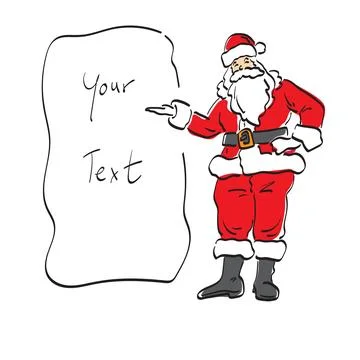 Your
Text